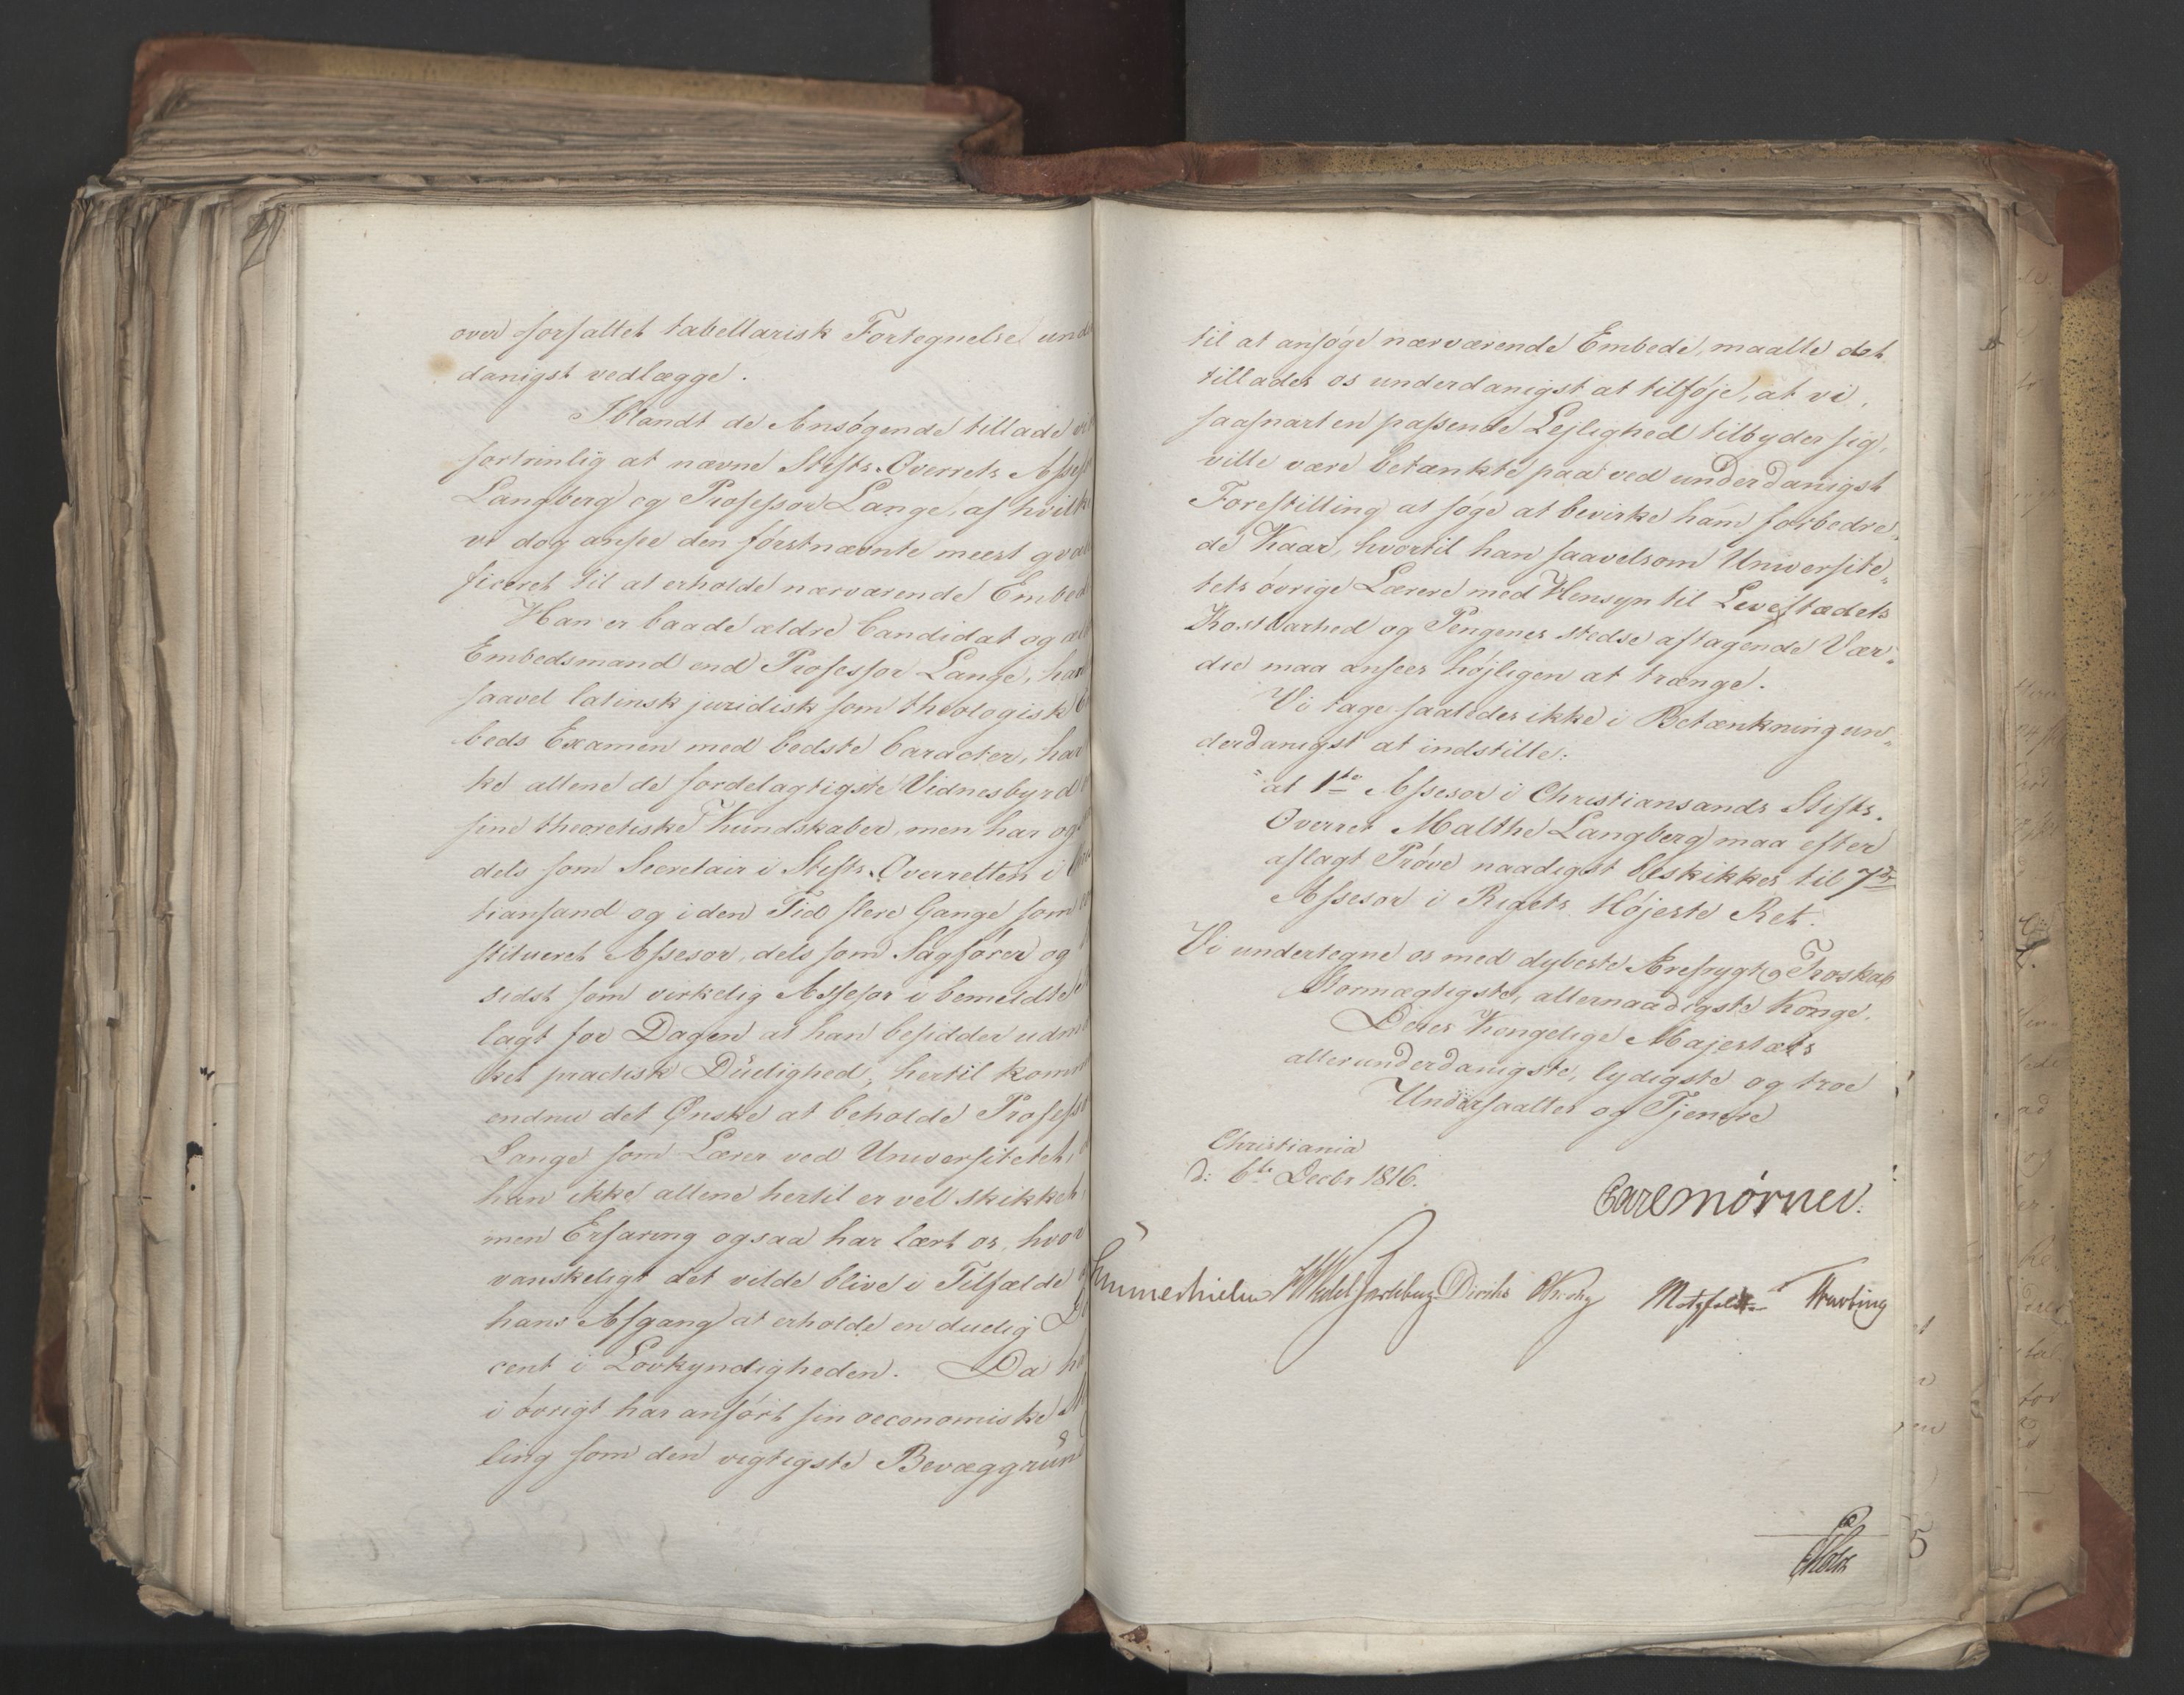 over forfattet tabellarisk Fortegnelse und
danigst vedlægge.
Iblandt de Ansøgende tillade vi
fortrinlig at nævne Stifts-Overrets Assess
Langberg og Professor Lange, af hvilke
vi dog ansee den førstnævnte meest qval
ficeret til at erholde nærværende Embed
Han er baade ældre Candidat og æld
Embedsmand end Professor Lange, har
saavel latinsk juridisk som theologisk E
beds Examen med bedste Caracter, har
ke allene de fordelagtigste Vidnesbyrd
sine theoretiske Kundskaber, men har og
dels som Secretair i Stifts-Overretten i Chri
tiansand og i den Tid flere Gange som co
stitueret Assesor, dels som Sagfører og
sidst som virkelig Assesor i bemeldte
lagt for Dagen at han besidder udm
ket practisk Düelighed, hertil komm
endnu det Ønske at beholde Profess
Lange som Lærer ved Universitetet,
han ikke allene hertil er vel skikket,
men Erfaring ogsaa har lært os, hvor
vanskeligt det vilde blive i Tilfælde
hans Afgang at erholde en duelig Do
cent i Lovkyndigheden. Da ha
i øvrigt har anført sin oeconomiske
ling som den vigtigste Bevæggrund
til at ansøge nærværende Embede, maatte det
tillades os underdanigst at tilføje, at vi,
saasnart en passende Lejlighed tilbyder sig,
ville være betænkte paa ved underdanigst
Forestilling at søge at bevirke ham forbedre„
de Kaar, hvortil han saavelsom Universite„
tets øvrige Lærere med Hensyn til Levestædets
Kostbarhed og Pengenes stedse aftagende Vær„
die maa ansees højligen at trænge.
Vi tage saaledes ikke i Betænkning un„
derdanigst at indstille:
"at 1ste Assesor i Christiansands Stifts-
Overret Malthe Langberg maa efter
aflagt Prøve naadigst beskikkes til 7de
Assesor i Rigets Højeste Ret.
Vi undertegne os med dybeste Ærefrygt og Troskab
Stormægtigste, allernaadigste Konge,
Deres Kongelige Majestæts
allerunderdanigste, lydigste og troe
Undersaatter og Tjenere
Christiania
d: 6te Decbr 1816.
Carl Mörner.
Sommerhielm HWedel Jarlsberg Diriks Krohg Motzfeldt Treschow
Holst
5